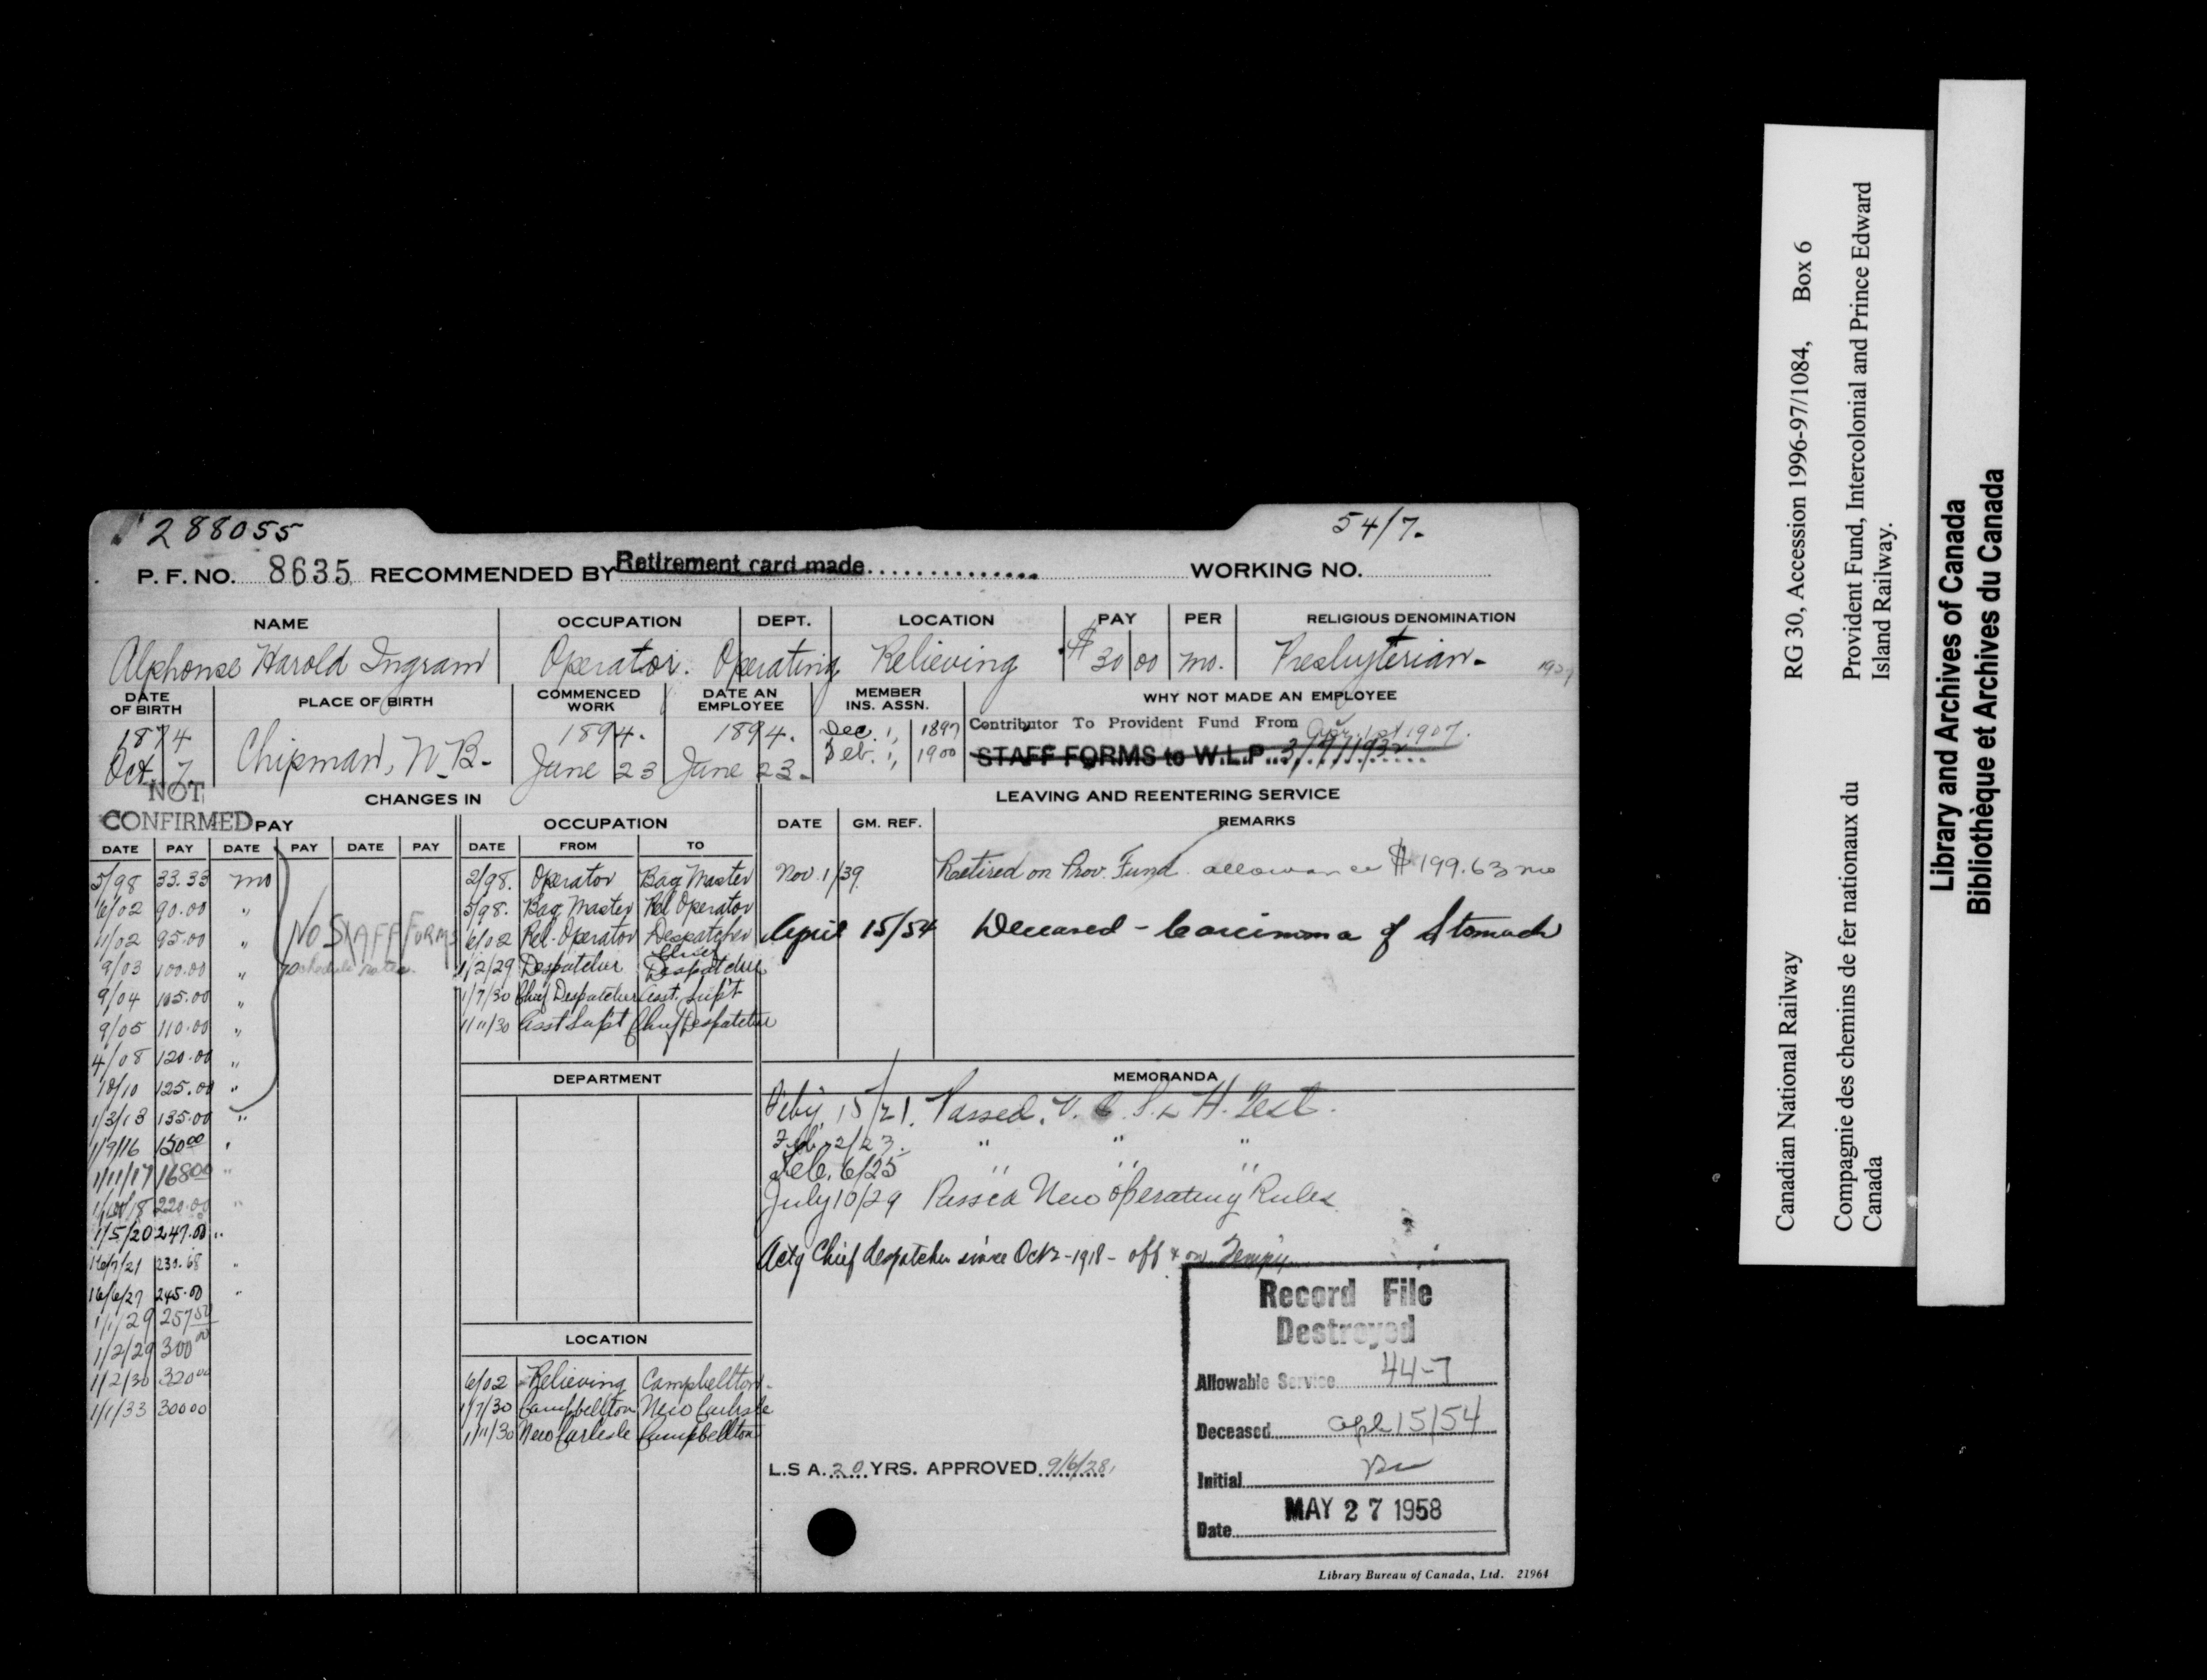 288055
54/7.
P. F. NO. 8635 RECOMMENDED BY Retirement card made WORKING NO.
NAME OCCUPATION DEPT. LOCATION PAY PER RELIGIOUS DENOMINATION
Alphonse Harold Ingram Operator. Operating Relieving $30 00 mo. Presbyterian-
DATE OF BIRTH PLACE OF BIRTH COMMENCED WORK DATE AN EMPLOYEE MEMBER INS. ASSN. WHY NOT MADE AN EMPLOYEE
1874 1894. 1894. Dec. 1, 1897 Contributor To Provident Fund From Apr. 1st 1907.
Oct. 7. Chipman, N.B. June 23 June 23. Feb. 1, 1900 STAFF FORMS to W.L.P.
NOT CONFIRMED
CHANGES IN
PAY
DATE PAY DATE PAY DATE PAY
5/98 33.33 mo
6/02 90.00 "
11/02 95.00 "
9/03 100.00 "
9/04 105.00 "
9/05 110.00 "
4/08 120.00 "
10/10 125.00 "
1/3/13 135.00 "
1/9/16 150 00 "
1/11/17 168 00 "
220.00 "
1/5/20 247.00 "
16/7/21 230.68 "
16/6/27 245.00 "
1/1/29 257 50
1/2/29 300 00
1/2/30 320 00
1/1/33 300 00
NO STAFF FORMS
OCCUPATION
DATE FROM TO
2/98. Operator Bag Master
5/98. Bag Master Rel Operator
6/02 Rel. Operator Despatcher
1/2/29 Despatcher Chief Despatcher
1/7/30 Chief Despatcher Asst. Supt
1/11/30 Asst Supt Chief Despatcher
DEPARTMENT
LOCATION
6/02 Relieving Campbellton
1/7/30 Campbellton New Carlisle
1/11/30 New Carlisle Campbellton
LEAVING AND REENTERING SERVICE
DATE GM. REF. REMARKS
Nov. 1/39 Retired on Prov. Fund allowance $199.63 mo
April 15/54 Deceased - Carcinoma of Stomach
MEMORANDA
Feby. 15/21. Passed V. C. S. & H. Test.
Feb. 2/23. " " "
Feb. 6/25 " " "
July 10/29 Passed New Operating Rules
Actg Chief despatcher since Oct 2-1918- off & on Tempy
L.S A. 20 YRS. APPROVED 9/6/28
Record File
Destroyed
Allowable Service 44-7
Deceased Apl 15/54
Initial
Date MAY 27 1958
Library Bureau of Canada, Ltd. 21964
Canadian National Railway RG 30, Accession 1996-97/1084, Box 6
Compagnie des chemins de fer nationaux du Canada
Provident Fund, Intercolonial and Prince Edward Island Railway.
Library and Archives of Canada
Bibliothèque et Archives du Canada